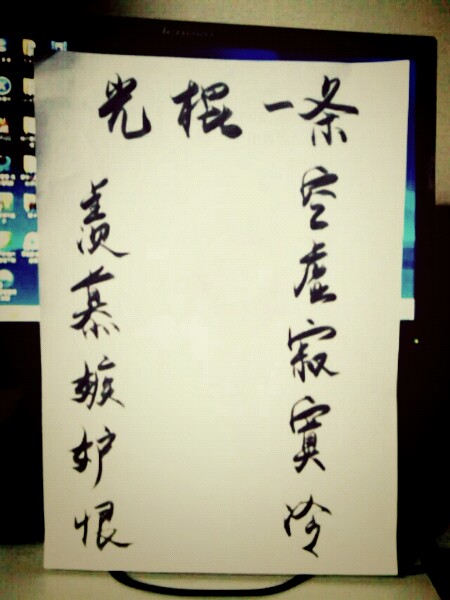 lenovo
光棍一条
空虚寂寞冷
羡慕嫉妒恨